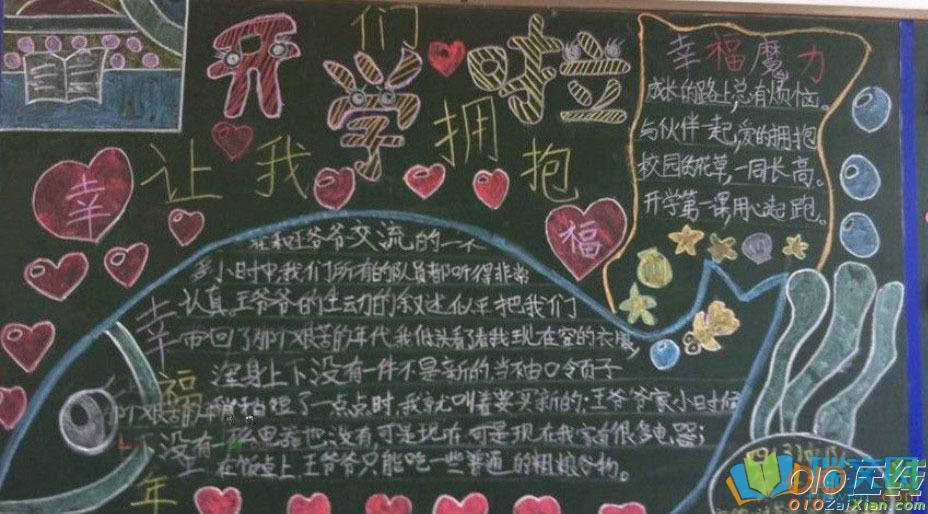 开学啦
让我们拥抱
幸
福
幸福魔力
成长的路上,总有烦恼。
与伙伴一起,爱的拥抱
校园的花草,一同长高。
开学第一课用心起跑。
幸福童年
在和王爷爷交流的一个
多小时中,我们所有的队员都听得非常
认真。王爷爷的生动的叙述似乎把我们
带回了那个艰苦的年代,我低头看了看我现在穿的衣服,
浑身上下没有一件不是新的,当袖口领子
短了一点点时,我就叫着要买新的;王爷爷家小时候
没有 电器也没有,可是现在,可是现在我家有很多电器;
在饭桌上,王爷爷只能吃一些普通的粗粮谷物。
010在线
010ZaiXian.com